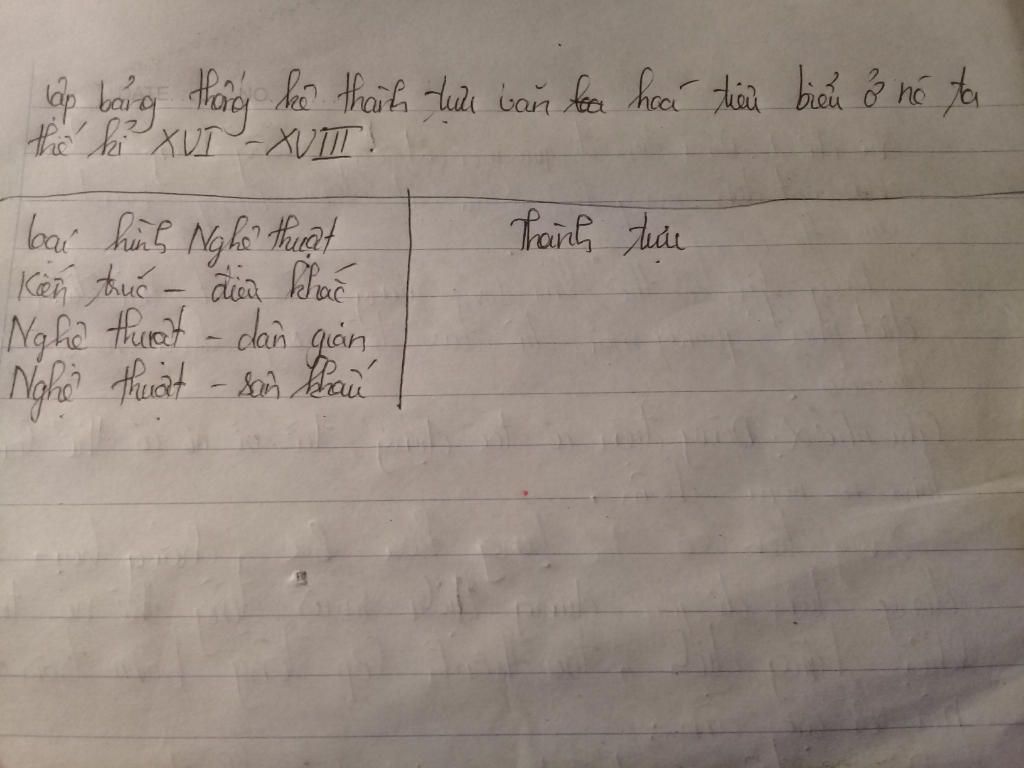 lập bảng thống kê thành tựu văn hoá tiêu biểu ở nc ta
thế kỉ XVI - XVIII!
loại hình Nghệ thuật
Thành tựu
Kiến trúc - điêu khắc
Nghệ thuật - dân gian
Nghệ thuật - sân khấu